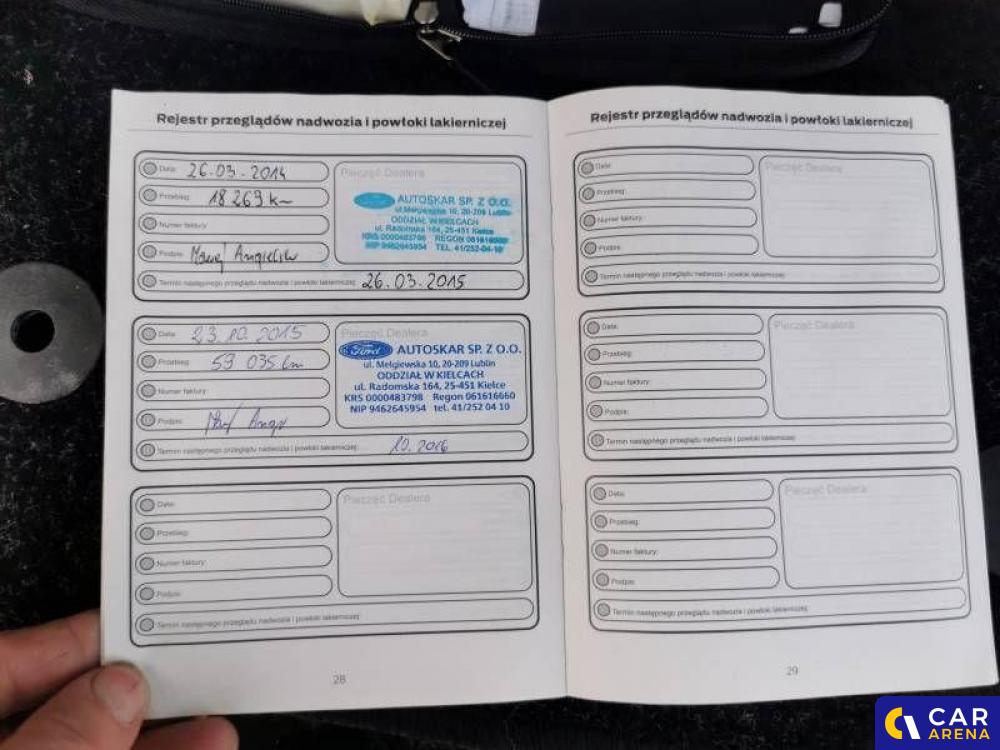 Rejestr przeglądów nadwozia i powłoki lakierniczej
Data: 26.03.2014
Przebieg: 18 269 km
Numer faktury:
Podpis:
Pieczęć Dealera
AUTOSKAR SP. Z O.O.
ul. Mełgiewska 10, 20-209 Lublin
ODDZIAŁ W KIELCACH
ul. Radomska 164, 25-451 Kielce
KRS 0000483798 REGON 061616660
NIP 9462645954 TEL. 41/252-04-10
Termin następnego przeglądu nadwozia i powłoki lakierniczej: 26.03.2015
Data: 23.10.2015
Przebieg: 59 035 km
Numer faktury:
Podpis:
Pieczęć Dealera
Ford AUTOSKAR SP. Z O.O.
ul. Mełgiewska 10, 20-209 Lublin
ODDZIAŁ W KIELCACH
ul. Radomska 164, 25-451 Kielce
KRS 0000483798 Regon 061616660
NIP 9462645954 tel. 41/252 04 10
Termin następnego przeglądu nadwozia i powłoki lakierniczej: 10.2016
Data:
Przebieg:
Numer faktury:
Podpis:
Pieczęć Dealera
Termin następnego przeglądu nadwozia i powłoki lakierniczej:
28
Rejestr przeglądów nadwozia i powłoki lakierniczej
Data:
Przebieg:
Numer faktury:
Podpis:
Pieczęć Dealera
Termin następnego przeglądu nadwozia i powłoki lakierniczej:
Data:
Przebieg:
Numer faktury:
Podpis:
Pieczęć Dealera
Termin następnego przeglądu nadwozia i powłoki lakierniczej:
Data:
Przebieg:
Numer faktury:
Podpis:
Pieczęć Dealera
Termin następnego przeglądu nadwozia i powłoki lakierniczej:
29
CAR
ARENA